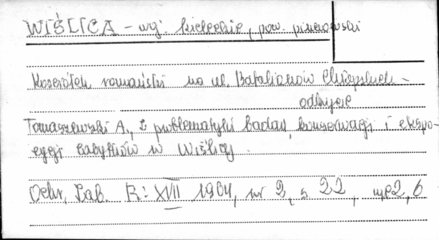 WIŚLICA - woj. kieleckie, pow. pińczowski
Kościółek romański na ul. Batalionów Chłopskich -
odkrycie
Tomaszewski A., Z problematyki badań, konserwacji i ekspo-
zycji zabytków w Wiślicy.
Ochr. Zab. R: XVII 1964, nr 2, s 22, il. 2, 6